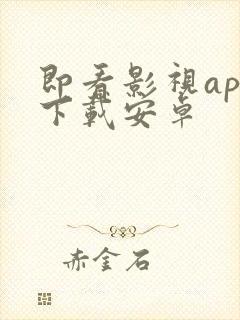 即看影視ap
下載安卓
赤金石